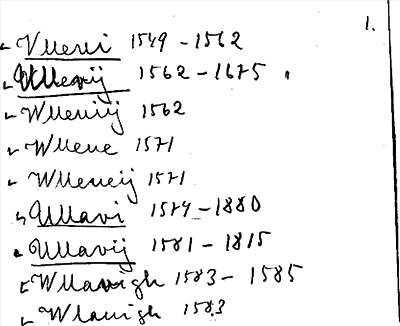 1.
Vllevi 1549 - 1562
Ullevij 1562 - 1675
Wllevij 1562
Wlleve 1571
Wlleveij 1571
Ullavi 1579 - 1880
Ullavij 1581 - 1815
Wllavigh 1583 - 1585
Wlavigh 1583